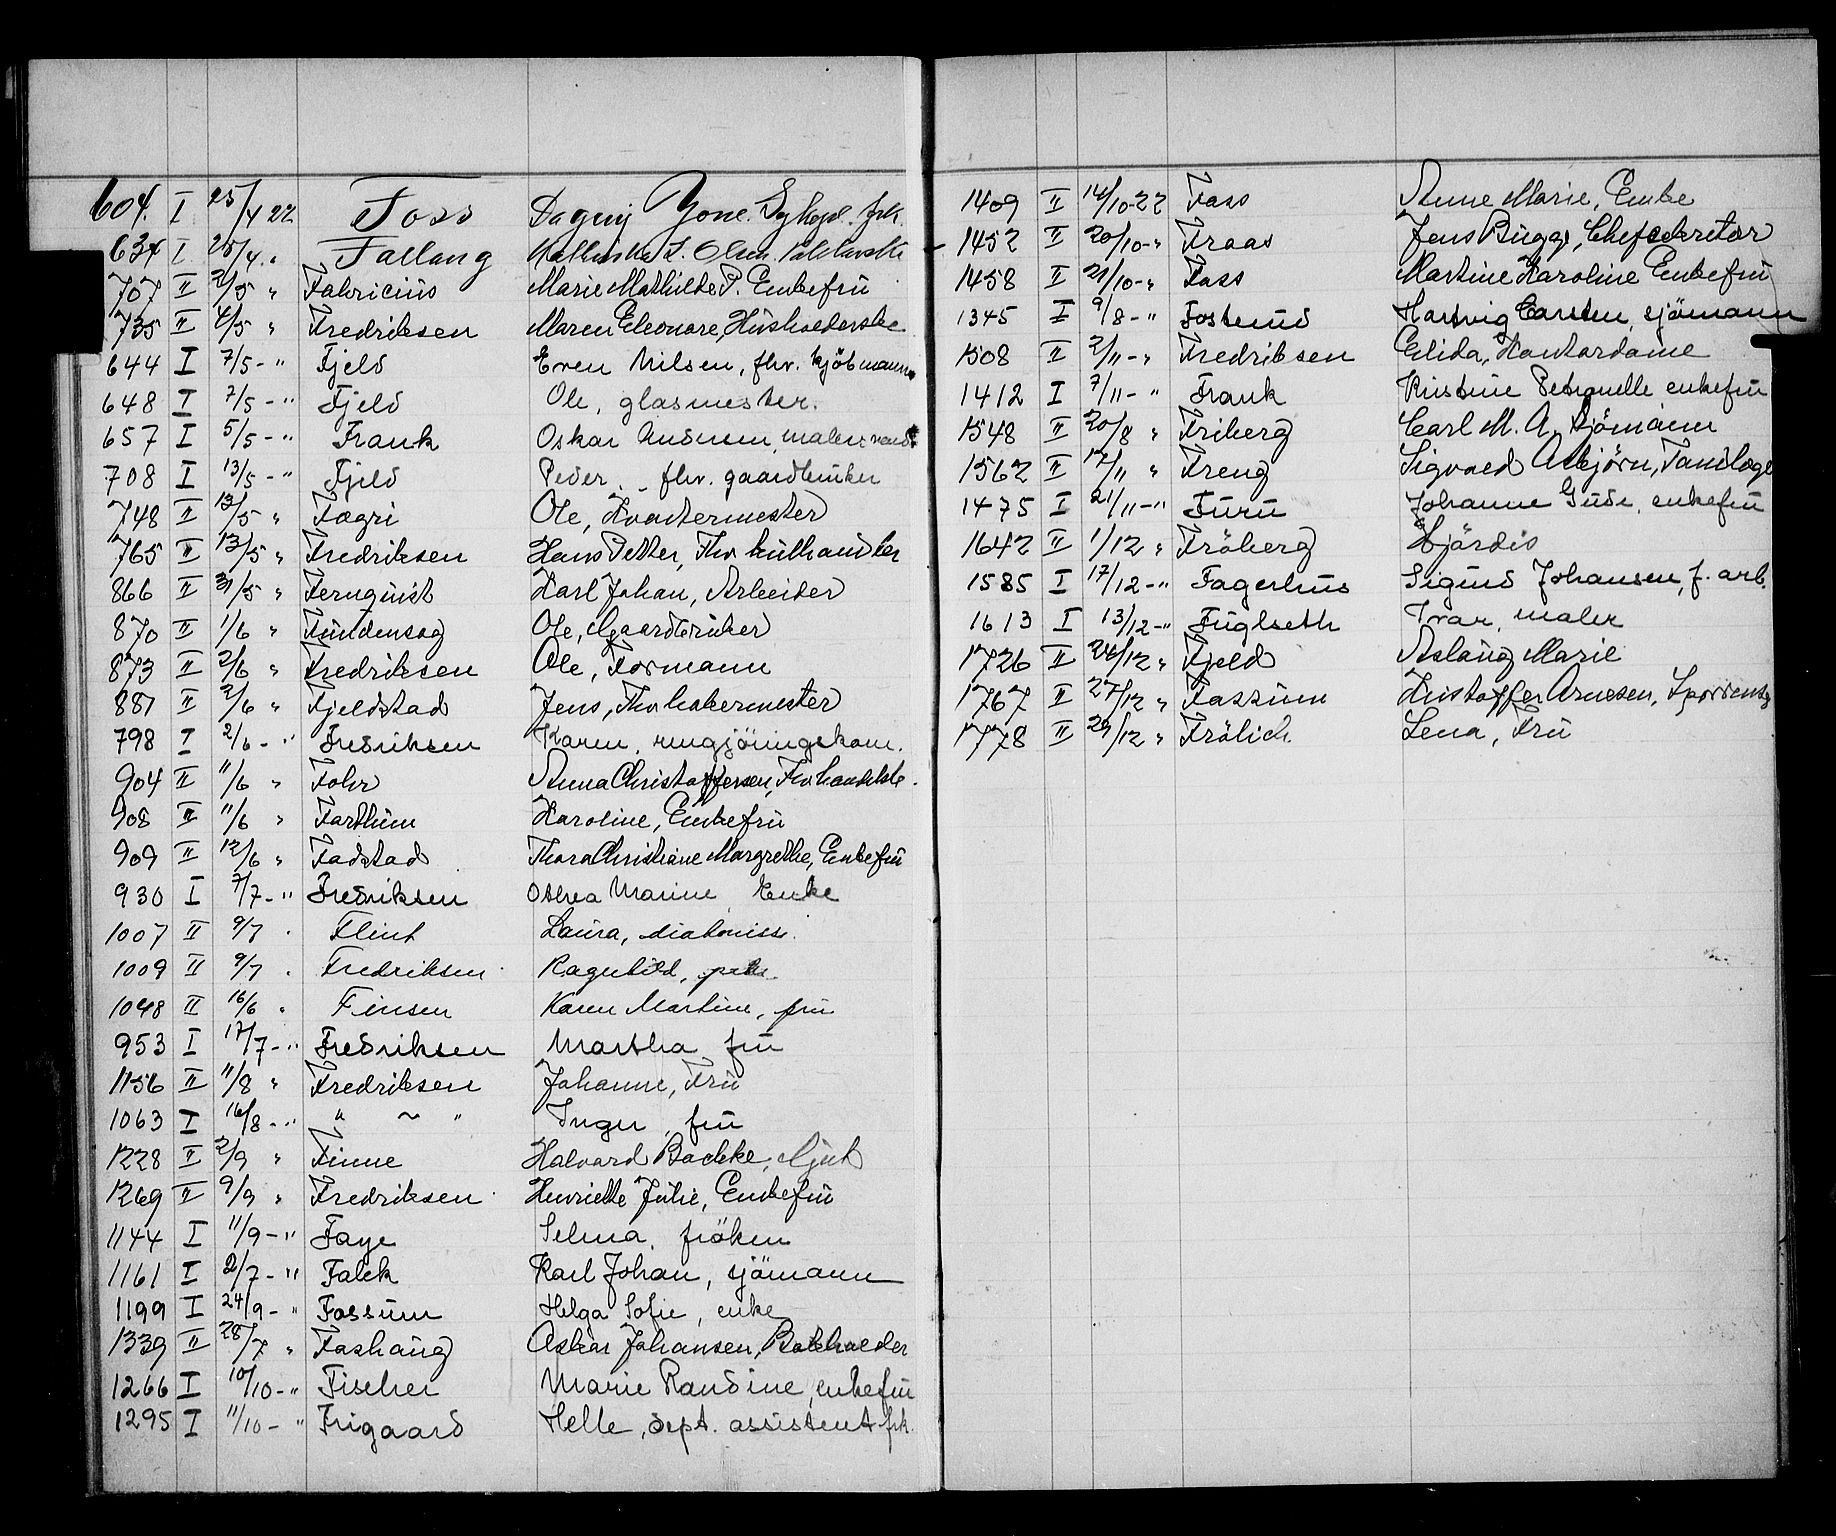 604. I 25/4 22 Foss Dagny Yone. Sykepl. frk.
634 I 25/4 " Fallang
707 II 2/5 " Fabricius Marie Mathilde P. Enkefru
735 II 4/5 " Fredriksen Maren Eleonore, Husholderske
644 I 7/5 - " Fjeld Even Nilsen, fhv. kjöbmann
648 I 7/5 - " Fjeld Ole, glasmester.
657 I 5/5 - " Frank Oskar Andersen, malersvend
708 I 13/5 - " Fjeld Peder, fhv. gaardbruker
748 II 13/5 " Fægri Ole, Kvartermester
765 II 13/5 " Fredriksen Hans Petter, Fhv. kulhandler
866 II 31/5 " Fernquist Karl Johan, Arbeider
870 II 1/6 " Furdensag Ole, Gaardbruker
873 II 2/6 " Fredriksen Ole, Formann
887 II 2/6 " Fjeldstad Jens, Fhv.
798 I 2/6 - " Fredriksen Karen, rengjöringskone.
904 II 11/6 " Fohr Anna Christoffersen, Fhv. handelsb.
908 II 11/6 " Forthun Karoline, Enkefru
909 II 12/6 " Fadstad Thora Christiane Margrethe, Enkefru
930 I 7/7 - " Fredriksen Othea Marine Enke
1007 II 9/7 . Flint Laura, diakonisse.
1009 II 9/7 . Fredriksen Ragnhild,
1048 II 16/6 " Finsen Karen Martine, fru
953 I 17/7 - " Fredriksen Martha fru
1156 II 11/8 " Fredriksen Johanne, Fru
1063 I 16/8 - " " ~ " Inger, fru
1228 II 2/9 " Finne Halvard Backke, Gut
1269 II 9/9 " Fredriksen Henriette Julie, Enkefru
1144 I 11/9 - " Faye Selma, fröken
1161 I 2/7 - " Falck Karl Johan, sjömann
1199 I 24/9 - " Fossum Helga Sofie, enke
1339 II 28/7 " Foshaug Oskar Johansen, Bokholder
1266 I 10/10 - " Fischer Marie Randine, enkefru
1295 I 11/10 - " Frigaard Helle, dept. assistent frk.
1409 II 14/10-22 Foss Anne Marie, Enke
1452 II 20/10 - " Fraas Jens Bugge, Chefsekretær
1458 II 21/10 - " Foss Martine Karoline Enkefru
1345 I 9/8 - " Fosterud Hartvig Carsten, sjömann
1508 II 2/11 - " Fredriksen Elida, Kontordame
1412 I 7/11 - " Frank Kristine Petronelle enkefru
1548 II 20/8 " Friberg Carl M. A. Sjömann
1562 II 12/11 " Freng Sigvald Asbjørn, Tandlæge
1475 I 21/11 - " Furu Johanne Gude, enkefru
1642 II 1/12 " Fröberg Hjördis
1585 I 17/12 - " Fagerhus Sigurd Johansen, f. arb.
1613 I 13/12 - " Fuglseth Ivar, maler
1726 II 24/12 " Fjeld Aslaug Marie
1767 II 27/12 " Fossum Kristoffer Arnesen,
1778 II 29/12 " Frölich Lena, Fru